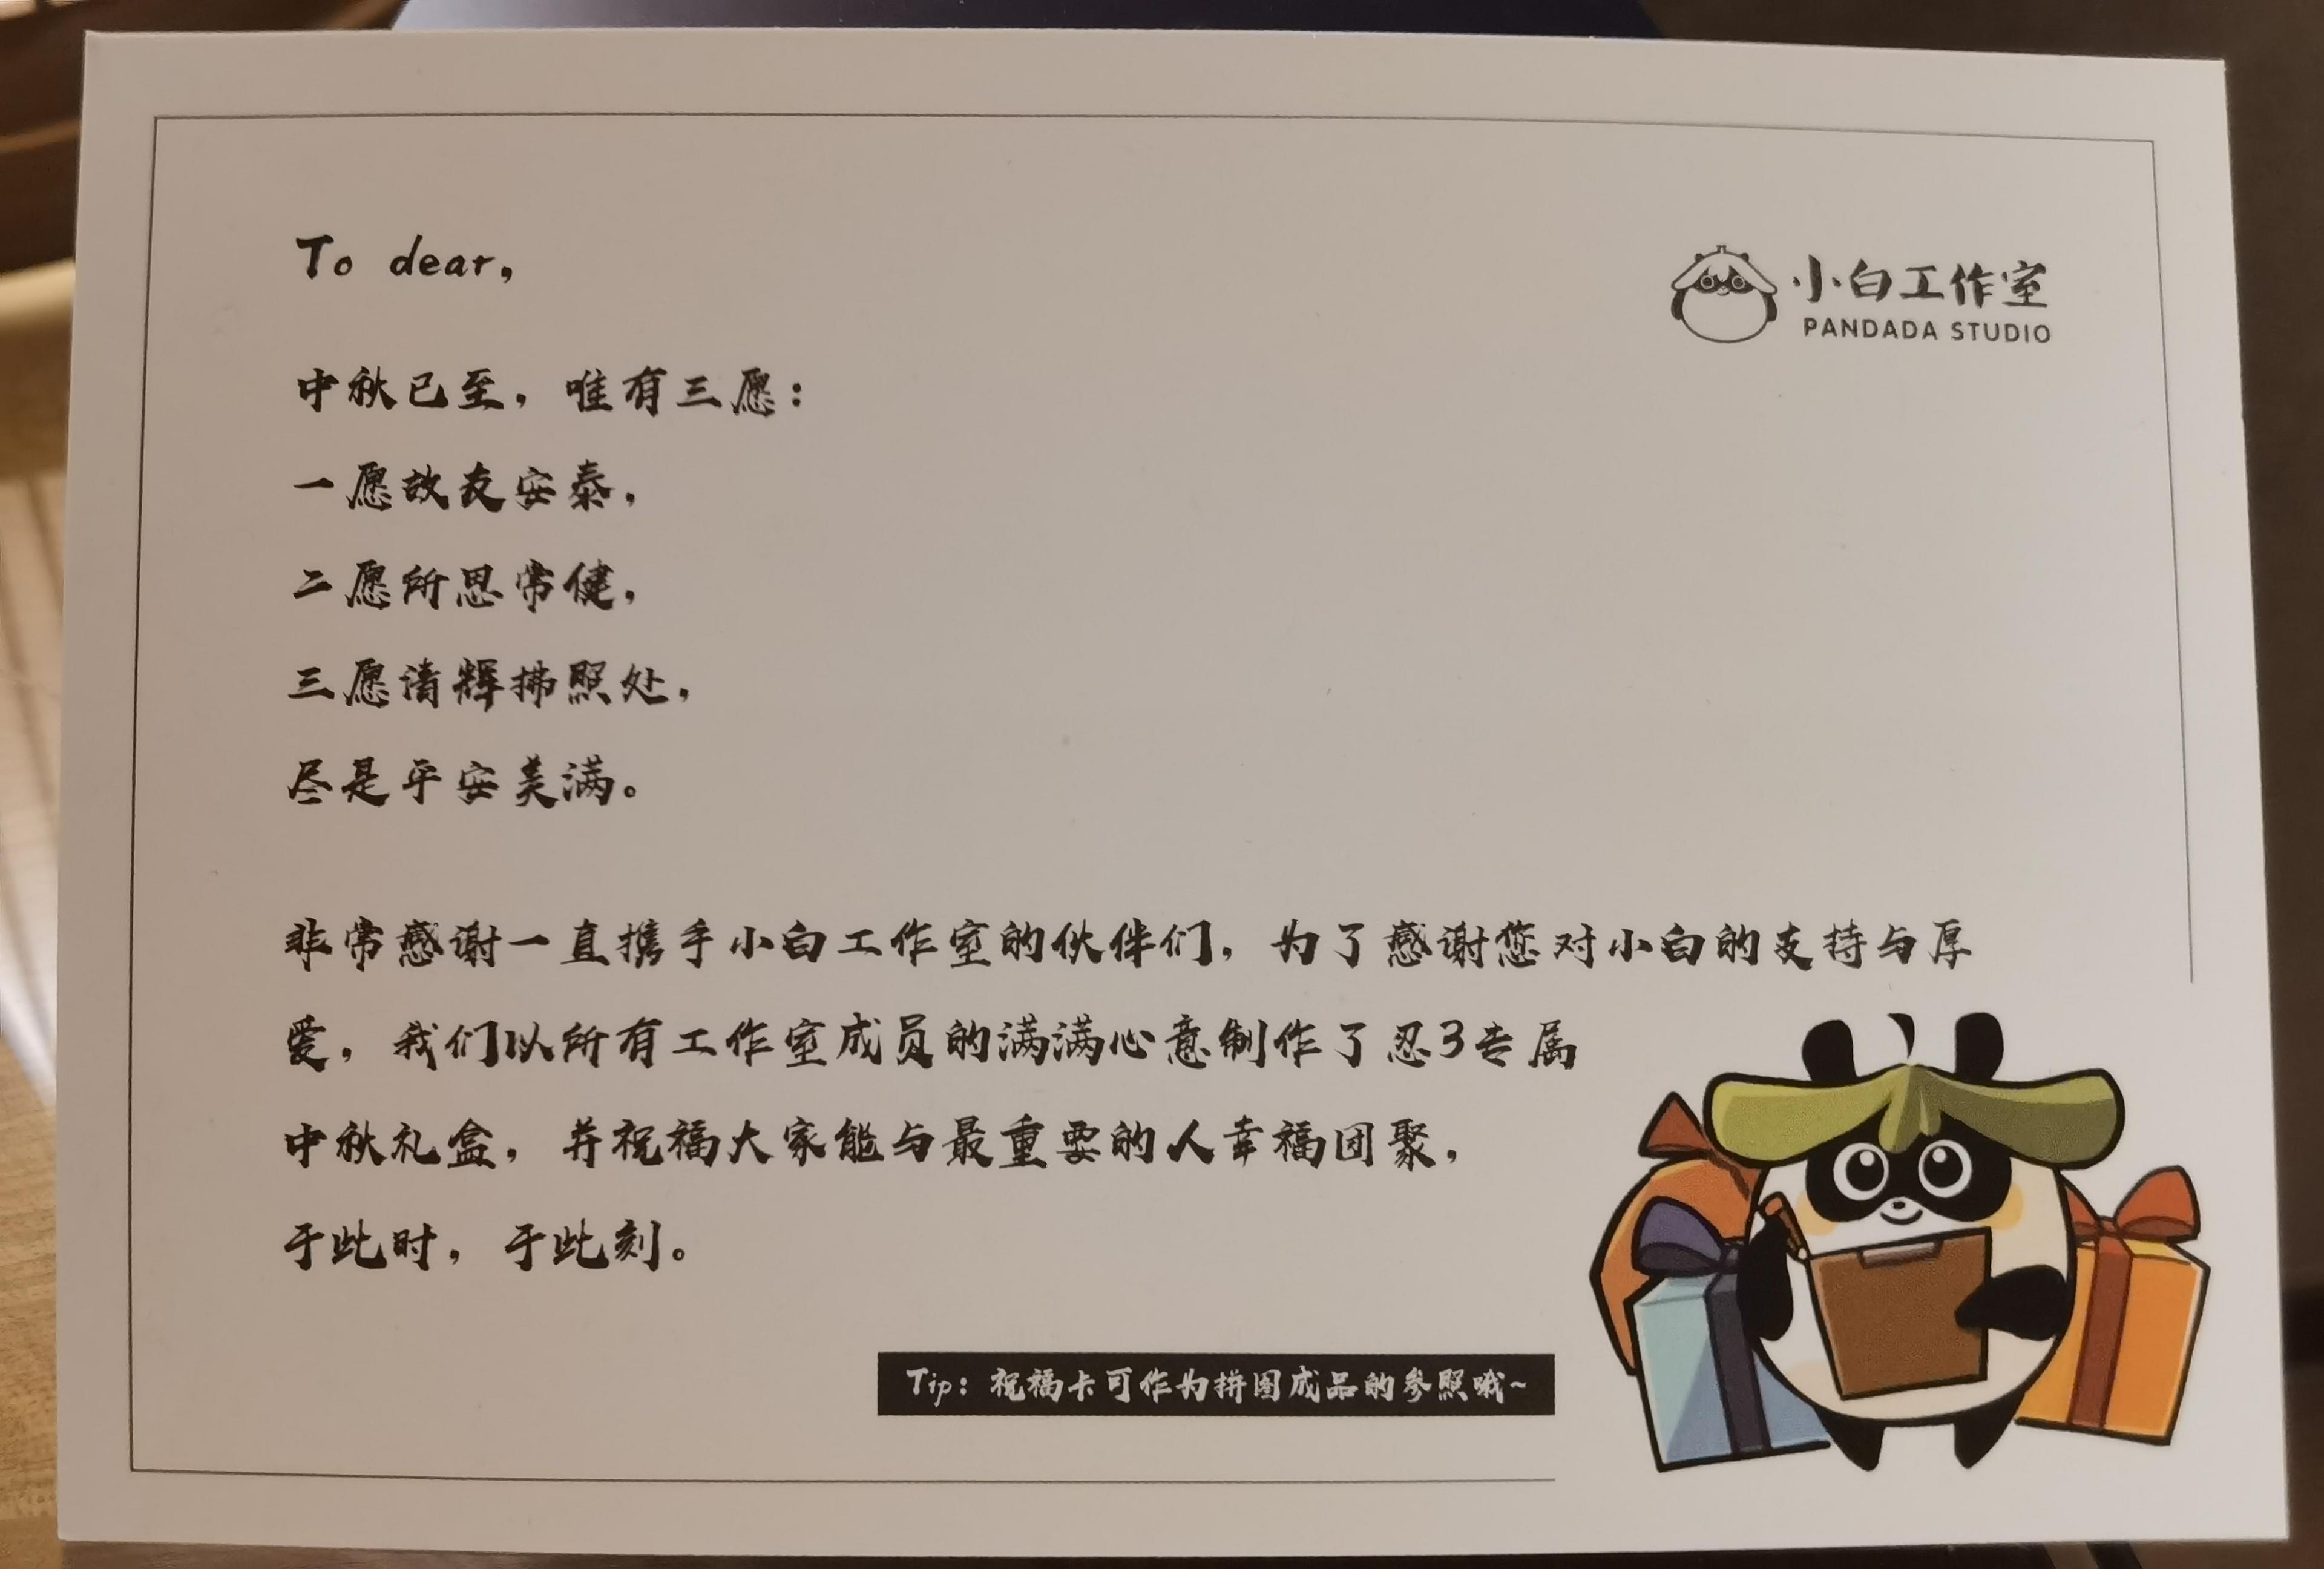 To dear,
小白工作室
PANDADA STUDIO
中秋已至，唯有三愿：
一愿故友安泰，
二愿所思常健，
三愿清辉拂照处，
尽是平安美满。
非常感谢一直携手小白工作室的伙伴们，为了感谢您对小白的支持与厚
爱，我们以所有工作室成员的满满心意制作了忍3专属
中秋礼盒，并祝福大家能与最重要的人幸福团聚，
于此时，于此刻。
Tip：祝福卡可作为拼图成品的参照哦~